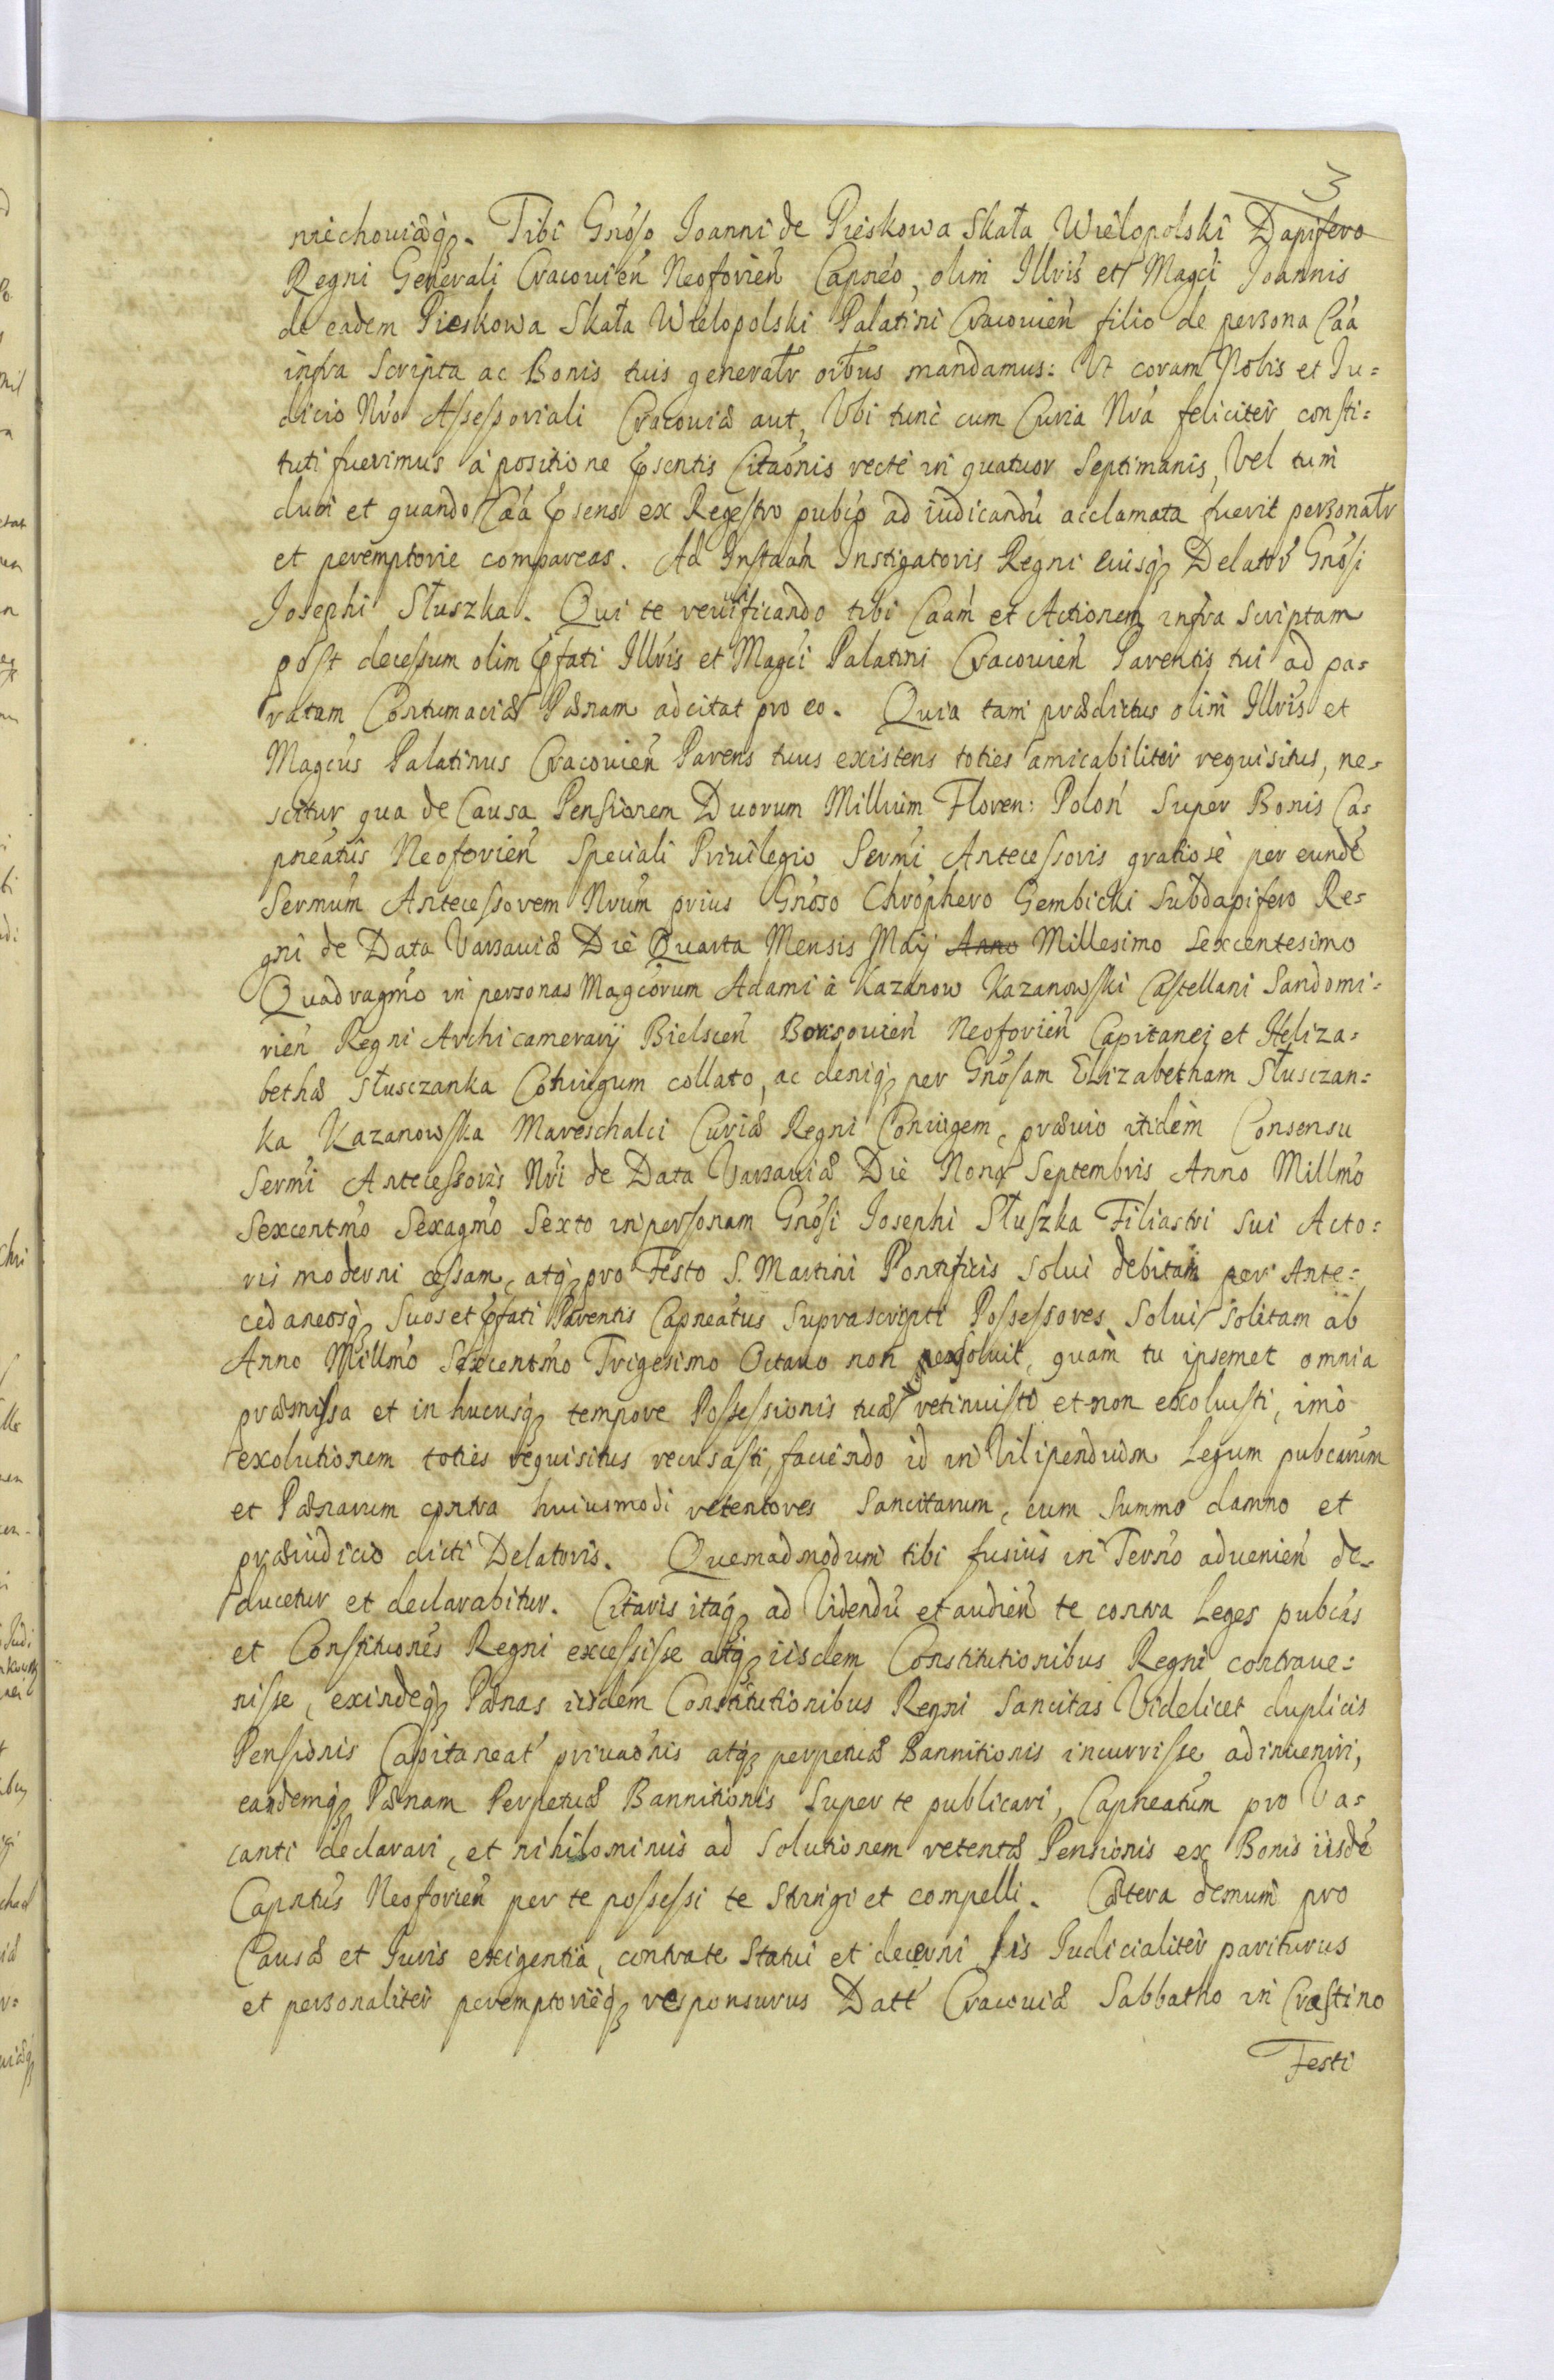 3
niechouiæq3. Tibi Gnóso Joanni de Pieskowa Skała Wielopolski Dapifero
Regni Generali Cracouień Neoforień Capnéo, olim Illris et Magci Joannis
de eadem Pieskowa Skała Wielopolski Palatini Cracouień filio de persona Caá
infra Scripta ac Bonis tuis generałr oibus mandamus: Ut coram Nobis et Ju=
dicio Nró Assessoriali Cracouiæ aut, Ubi tunc cum Curia Nrá feliciter consti=
tuti fuerimus à positione Psentis Citaónis recte in quatuor Septimanis, Vel tum
dum et quando Caá Psens ex Regestro pubco ad iudicandú acclamata fuerit personałr
et peremptorie compareas. Ad Instaám Instigatoris Regni eiusq3 Delator Gnósi
Josephi Słuszka. Qui te reuiuificando tibi Caám et Actionem infra Scriptam
post decessum olim Pfati Illris et Magci Palatini Cracouień Parentis tui ad pa=
ratam Contumaciæ Pænam adcitat pro eo. Quia tam prædictus olim Illris et
Magcus Palatinus Cracouień Parens tuus existens toties amicabiliter requisitus, ne=
scitur qua de Causa Pensionem Duorum Millium Floren: Poloń Super Bonis Ca=
pneátus Neoforień Speciali Priuilegio Sermi Antecessoris gratiose per eundé
Sermum Antecessorem Nrum prius Gnóso Chróphero Gembicki Subdapifero Re=
gni de Data Varsauiæ Die Quarta Mensis Maÿ Anno Millesimo Sexcentesimo
Quadragmo in personas Magcórum Adami à Kazanow Kazanowski Castellani Sandomi=
rień Regni Archicamerarÿ Bielscen Borisouień Neoforień Capitanei et Heliza=
bethæ Słusczanka Coniugum collato, ac deniq3 per Gnósam Elizabetham Słusczan=
ka Kazanowska Mareschalci Curiæ Regni Coniugem, præuio itidem Consensu
Sermi Antecessoris Nri de Data Varsauiæ Die Nona Septembris Anno Millmo
Sexcentmo Sexagmo Sexto in personam Gnósi Josephi Słuszka Filiastri sui Acto=
ris moderni cessam, atq3 pro Festo S. Martini Pontificis Solui debitam per Ante=
cedaneosq3 Suos et Pfati Parentis Capneátus Suprascripti Possessores Solui Solitam ab
Anno Millmo Sexcentmo Trigesimo Octauo non persoluit, quam tu ipsemet omnia
præmissa et in hucusq3 tempore Possessionis tuæ retinuisti et non exoluisti, imo
exolutionem toties requisitus recusasti, faciendo id in Vilipendium Legum pubcarum
et Pænarum contra huiusmodi retentores Sancitarum, cum Summo damno et
præiudicio dicti Delatoris. Quemadmodum tibi fusius in Termo aduenień de=
ducetur et declarabitur. Citaris itaq3 ad Videndú et audień te contra Leges pubcas
et Constituónes Regni excessisse atq3 iisdem Constitutionibus Regni contraue=
nisse, exindeq3 Pænas iisdem Constitutionibus Regni Sancitas Videlicet duplicis
Pensionis Capitaneat priuaónis atq3 perpetuæ Bannitionis incurrisse adinueniri,
eandemq3 Pænam Perpetuæ Bannitionis Super te publicari, Capneatum pro Va=
canti declarari, et nihilominus ad Solutionem retentæ Pensionis ex Bonis iisdé
Capntus Neoforień per te possessi te Stringi et compelli. Cætera demum pro
Causæ et Juris exigentia, contra te Statui et decerni sis Judicialiter pariturus
et personaliter peremptorieq3 responsurus Datt Cracouiæ Sabbatho in Crastino
Festi